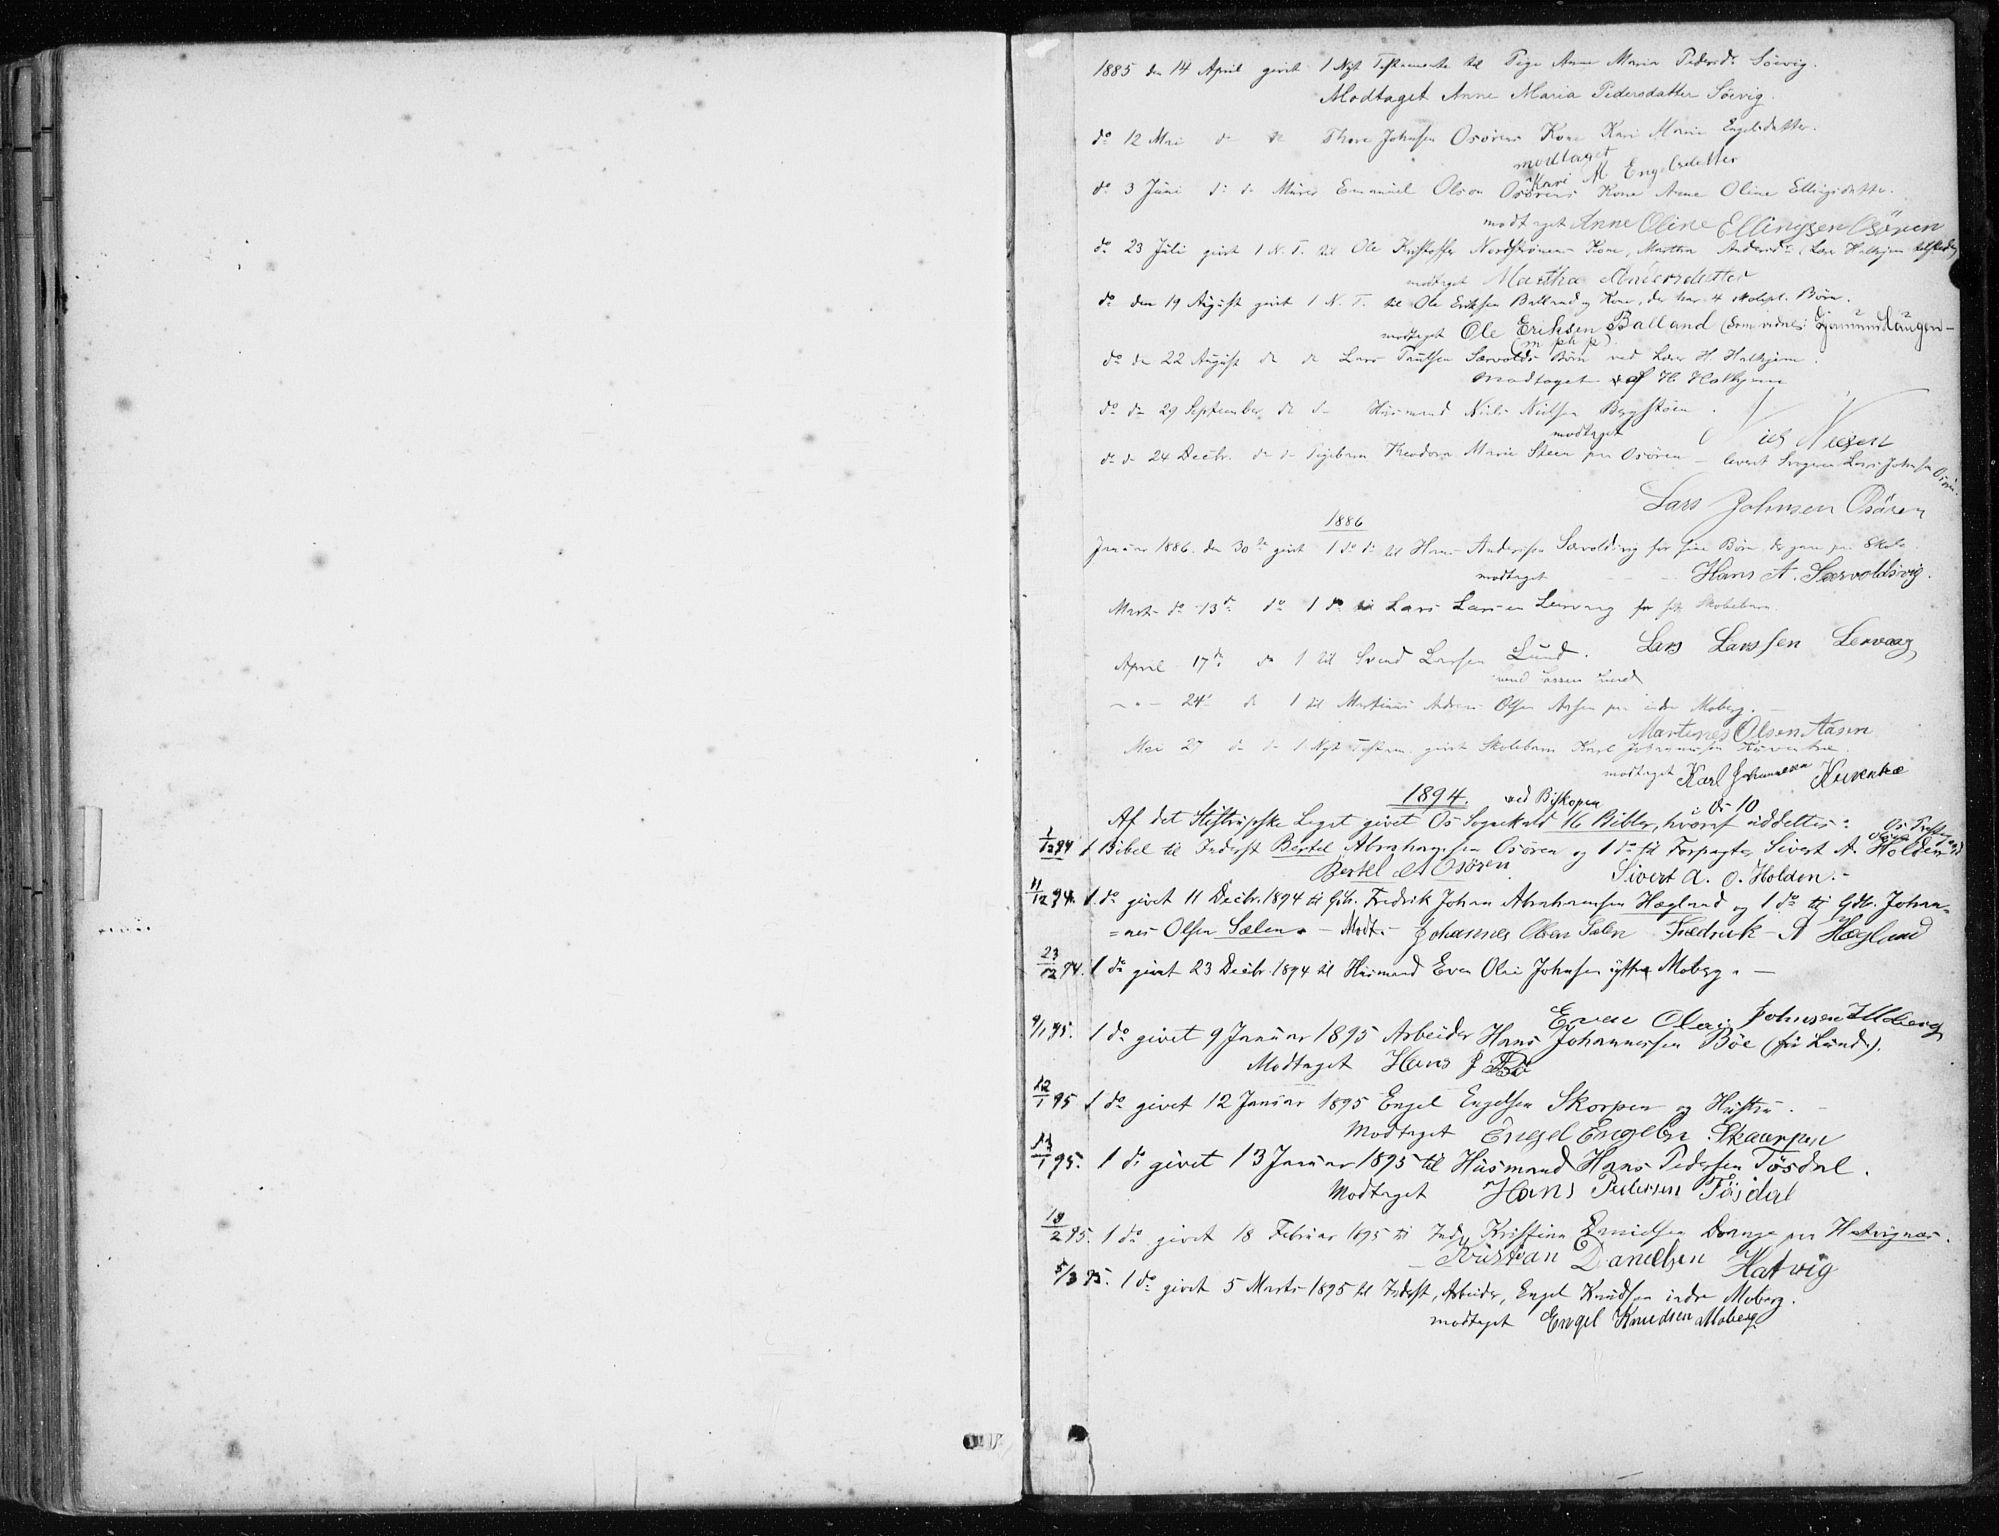 1885 den 14 April givet 1 Nyt Testamente til Pige Anne Maria Pedersdr Söevig.
Modtaget Anne Maria Pedersdatter Söevig.
do 12 Mai do til Thore Johnsen Osörens Kone Kari Marie Engelsdatter.
modtaget
Kari M Engelsdatter
do 3 Juni do do Murer Emanuel Olson Osörens Kone Anne Oline Ellingsdatter.
modtaget Anne Oline Ellingsen Osören
do 23 Juli givet 1 N. T. til Ole Kristoffer Kone, Martha Andersdr
modtaget Martha Andersdatter
do den 19 August givet 1 N. T. til Ole Eriksen Balland og Kone, der har 4 skolepl. Börn.
modtaget Ole Eriksen Balland
(m ph p).
do den 22 August do do Lars Paulsen Sævolds Börn ved Lærer H. Halhjem.
modtaget af H. Halhjem
do den 29 September do do Husmand Niels Nielsen Bergstöen.
modtaget
do do 24 Decbr. do do Pigebarn Theodora Marie Steen paa Osören – levert Svogeren Lars Johnsen Osören.
Lars Johnsen Osören
1886
Januar 1886. den 30te givet 1 do do til Hans Andersen Sævoldsvig for sine Börn, der gaa paa Skole.
modtaget Hans A. Særvoldsvig.
Marts do 13de do 1 do til Lars Larsen Lervaag for sit Skolebarn.
Lars Larssen Lervaag
April 17de do 1 til Svend Larsen Lund.
– " – 24de do 1 til Martinus Andreas Olsen Aasen paa indre Moberg. –
Martines Olsen Aasen
Mai 27 do do 1 Nyt Testam. givet Skolebarn Karl Johannesen Kuventræ.
modtaget Karl Johannesen Kuventræ
1894. ved Biskopen
i Os 10
Af det Stiftrupske Legat givet Os Sognekald 16 Bibler, hvoraf uddeltes:
1/12 94 1 Bibel til Inderst Bertel Abrahamsen Osören og 1 do til Forpagter Sivert A. Holden
Bertel A Osören Sivert A. O. Holden. –
11/12 94. 1 do givet 11 Decbr. 1894 til Gdb. Fredrik Johan Abrahamsen Hægland og 1 do til Gdb. Johan=
=nes Olsen Sælen. – Modt. – Johannes Olsen Sælen Fredrick – A Hægland
23/12 94. 1 do givet 23 Decbr. 1894 til Husmand Even Olai Johnsen ÿttre Moberg. –
Even Olai Johnsen Y Moberg
9/1 95. 1 do givet 9 Januar 1895 Arbeider Hans Johannessen Böe (fra Lunde).
Modtaget Hans J Bö
12/1 95 1 do givet 12 Januar 1895 Engel Engelsen Skorpen og Hustru. –
Modtaget Engel Engelsn Skaarpen
13/1 95. 1 do givet 13 Januar 1895 til Husmand Hans Pedersen Tösdal.
Modtaget Hans Pedersen Tösdal
18/2 95. 1 do givet 18 Februar 1895 til Inds Drange paa Hatvignæs.
Kristian Danielsen Hatvig
5/3 95. 1 do givet 5 Marts 1895 til Inderst, Arbeider, Engel Knudsen indre Moberg.
modtaget Engel Knudsen Moberg